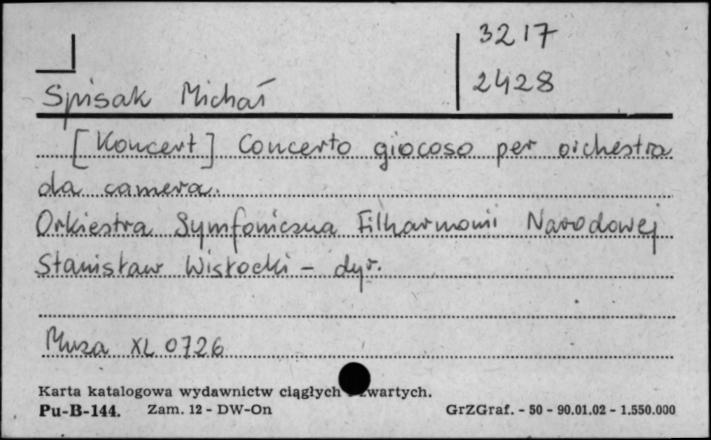 3217
2428
Spisak Michał
[Koncert] Concerto giocoso per orchestra
da camera.
Orkiestra Symfoniczna Filharmonii Narodowej
Stanisław Wisłocki – dyr.
Muza XL 0726
Karta katalogowa wydawnictw ciągłych zwartych.
Pu-B-144. Zam. 12 - DW-On GrZGraf. - 50 - 90.01.02 - 1.550.000